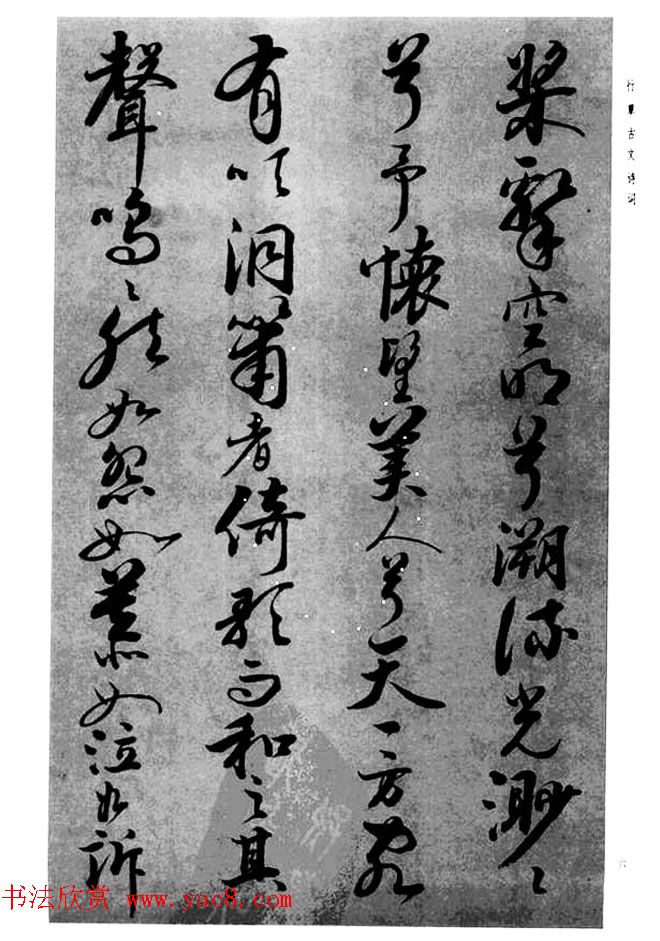 行草古文诗词
槳擊空明兮溯流光渺〻
兮予懷望美人兮天一方客
有吹洞簫者倚歌而和之其
聲嗚〻然如怨如慕如泣如訴
六
书法欣赏 www.yac8.com